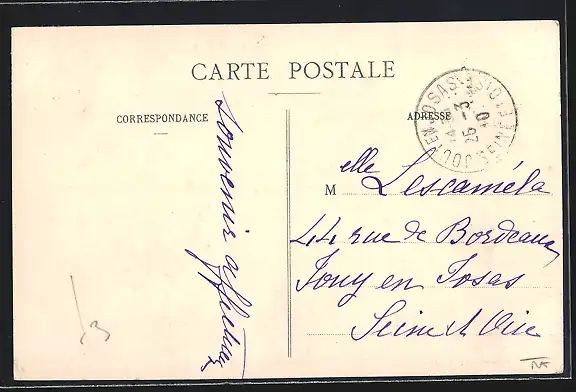 CARTE POSTALE
CORRESPONDANCE
ADRESSE
Souvenir affectueux
JOUY-EN-JOSAS SEINE-ET-OISE
25 -3
10
Melle Lescaméla
44 rue de Bordeaux
Jouy en Josas
Seine et Oise